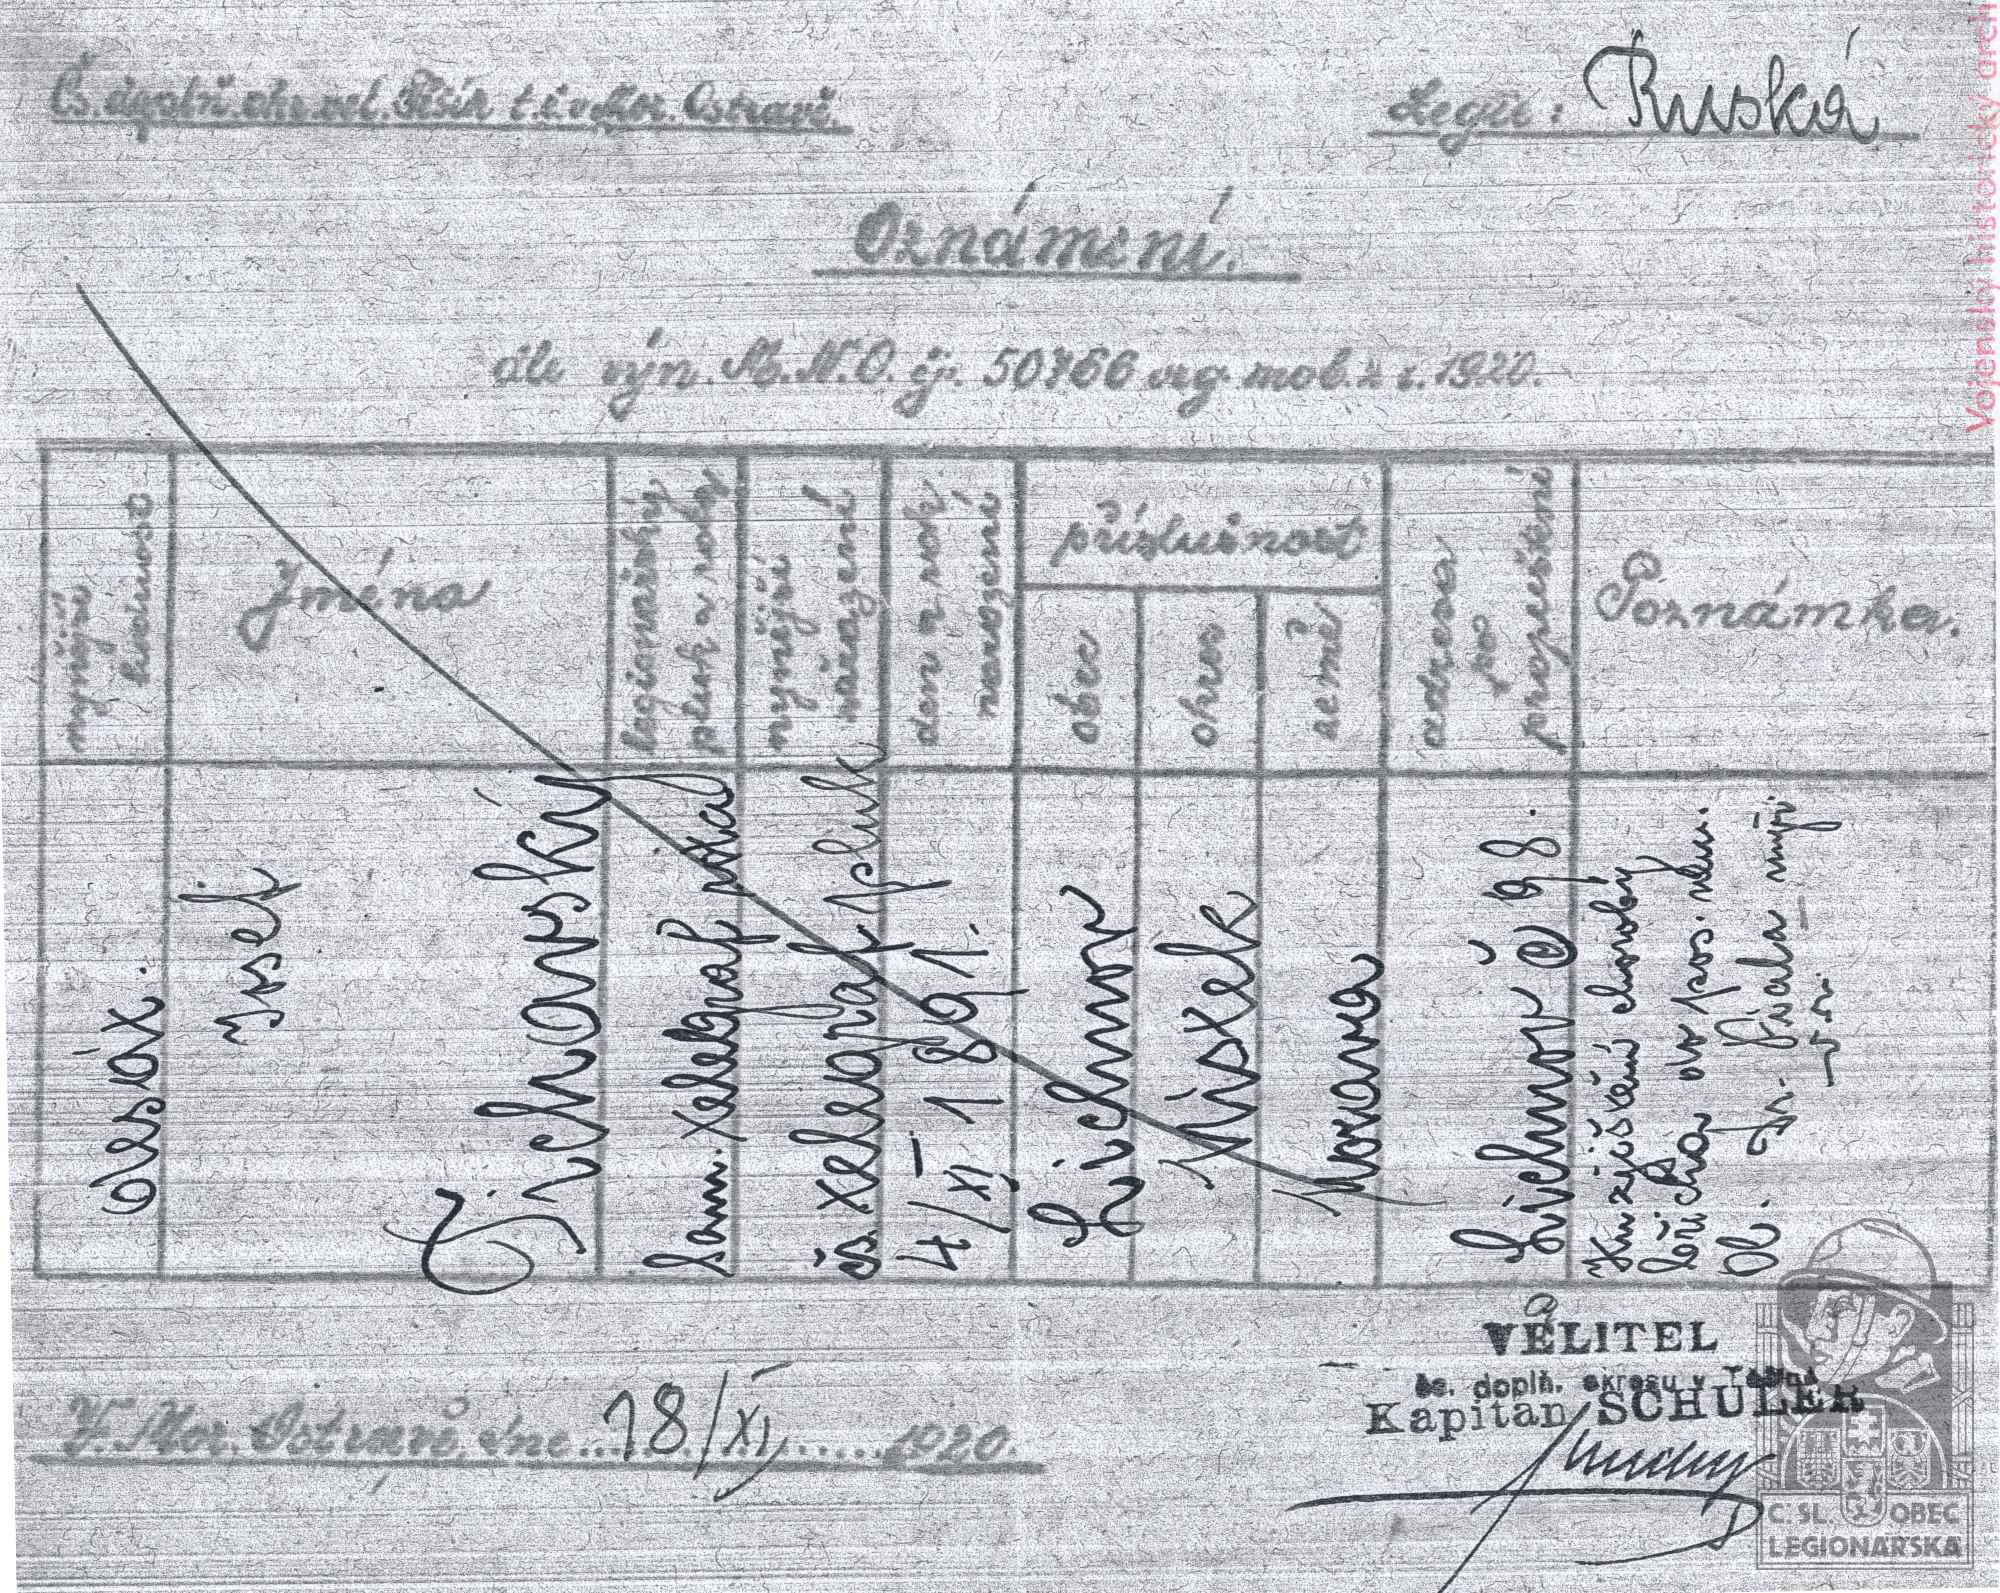 Čs. doplň. okr. vel. Těšín t.č. v Mor. Ostravě.
Legie: Ruská
Oznámení.
dle výn. M.N.O. čj. 50766 org. mob. z r. 1920.
nynější hodnost
Jména
legionářský pluk a rota
nynější zařazení
den a rok narození
příslušnost
obec
okres
země
adresa po propuštění
Poznámka.
desát.
Josef
Tichavský
Sam. telegraf
čs. telegraf. pluk
4/XI 1891.
Lichnov
Místek
Morava
Lichnov č 98.
Ku zjištění choroby
léčí
V. Mor. Ostravě dne 18/XI 1920.
VELITEL
čs. doplň. okresu v Těšíně
Kapitán SCHULER
Vojenský historický arch
Č. SL. OBEC
LEGIONÁŘSKÁ